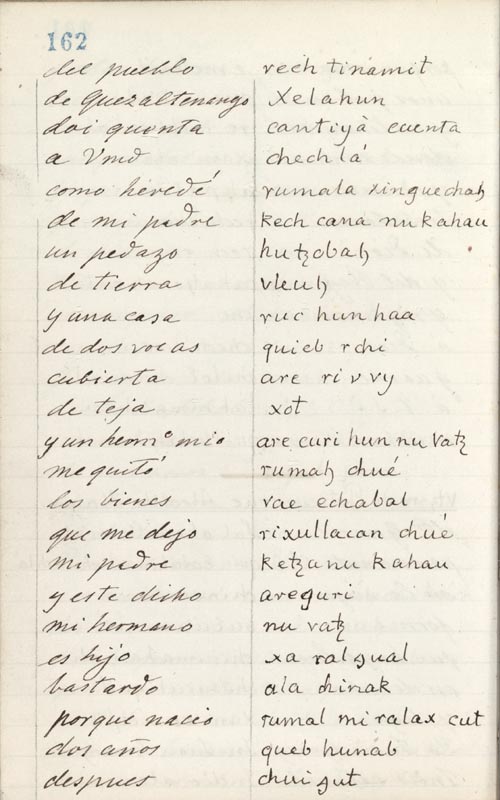 162
del pueblo rech tinamit
de Quezaltenango Xelahun
doi quenta cantiyà cuenta
a Vmd chech lá
como heredé rumala xinguechaꜧ
de mi padre kech cana nu kahau
un pedazo hutꜫobaꜧ
de tierra vleuꜧ
y una casa ruc hun haa
de dos vocas quieb rchi
cubierta are ri v vy
de teja xot
y un hermº mio are curi hun nu vatꜫ
me quitó rumaꜧ chué
los bienes vae echabal
que me dejo rixullacan chué
mi padre ketꜫanu kahau
y este dicho areguri
mi hermano nu vatꜫ
es hijo xa ralgual
bastardo ala chinak
porque nacio rumal mi ralax cut
dos años queb hunab
despues chui gut